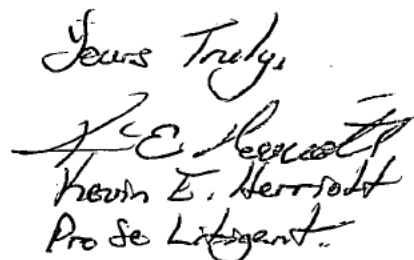 Yours Truly,
K E Herriott
Kevin E. Herriott
Pro Se Litigant.